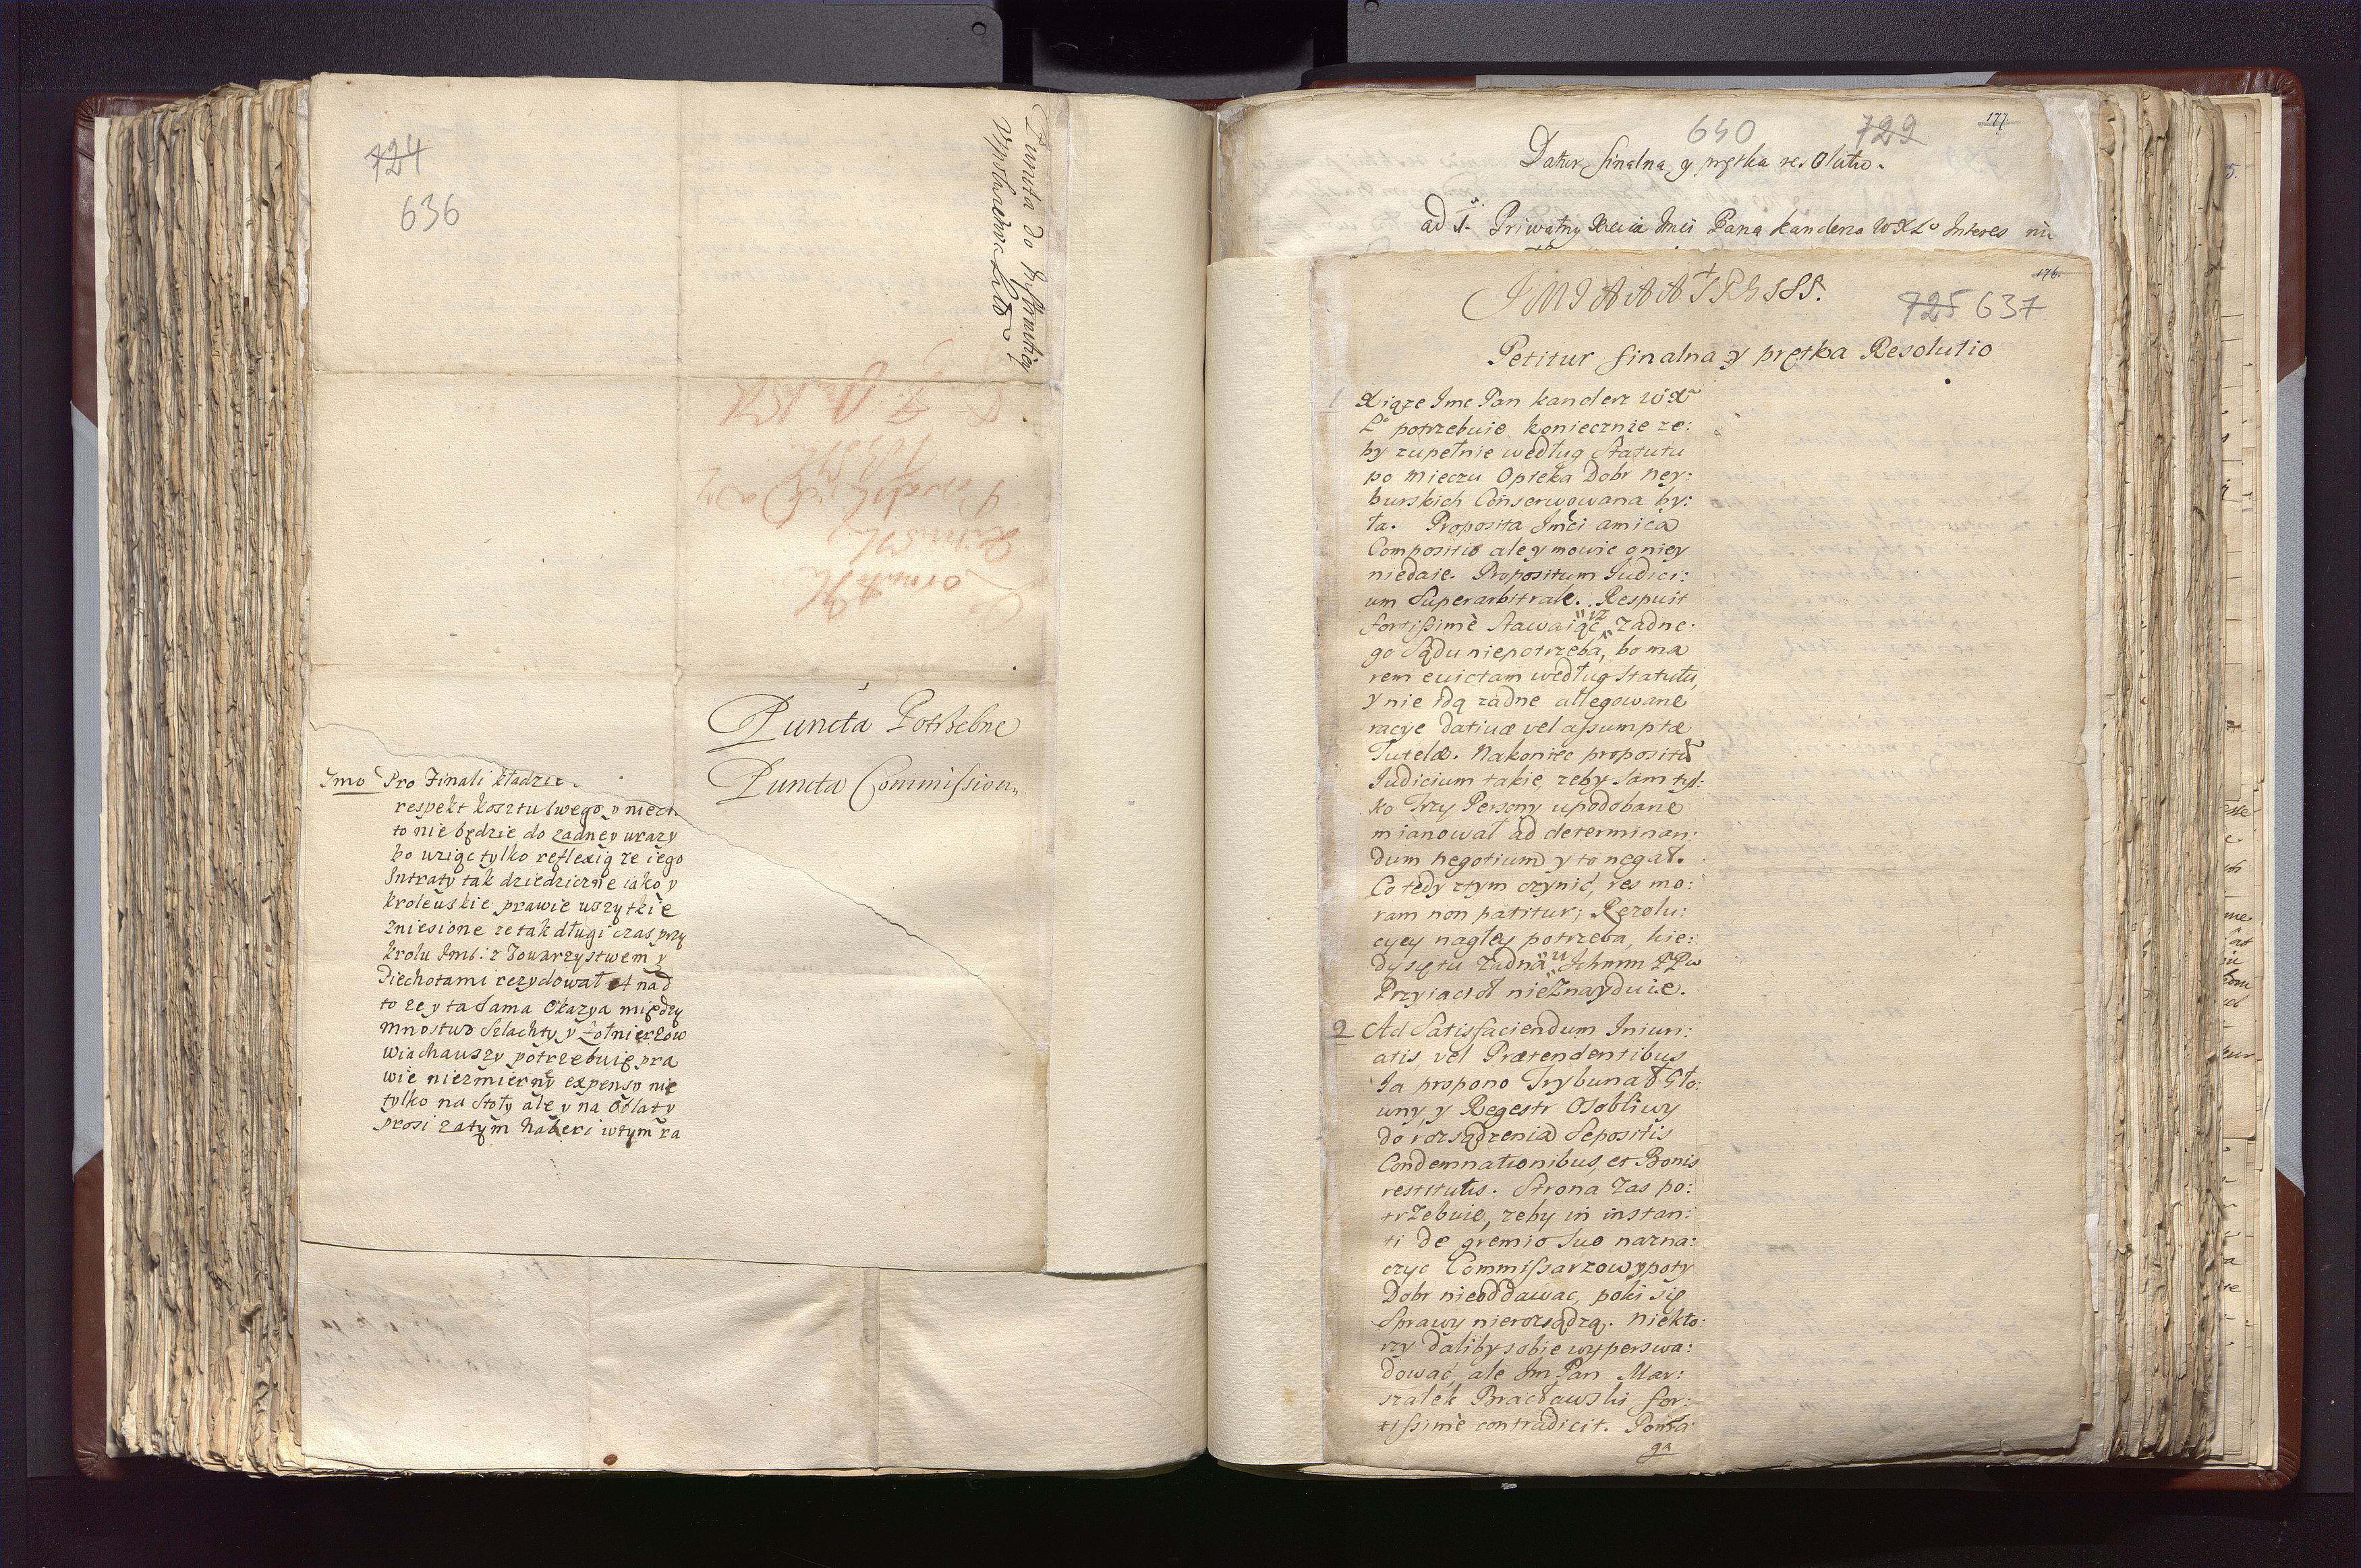 724
636
Puncta do Instructiey
Puncta Potrzebne
Puncta Commission
Imo Pro Finali kładzie
respekt kosztu swego y niech
to nie będzie do zadney urazy
bo wziąc tylko reflexią ze iego
Intraty tak dziedziczne iako y
kroleuskie prawie wszytkie
zniesione ze tak długi czas przy
krolu Imć: z Towarzystwem y
Piechotami rezydował et nad
to ze y ta sama Okazya między
mnostwo Szlachty y Żołnierzow
wiachauszy potrzebuię pra
wie niezmierny expensy nie
tylko na Stoły ale y na Oblaty
prosi zatym w tym ra
640 729 177.
Datur finalna y prętka resolutio.
ad 1. Priwatny Xcia Imci Pana kanclerza WXLo Interes
176.
725 637
Petitur finalna y prętka Resolutio
1 Xiąze Imc Pan kanclerz WXa
Lo potrzebuie koniecznie ze:
by zupełnie według Statutu
po mieczu Opieka Dobr Ney:
burskich Conserwowana by:
ła. Proposita Imci amica
Compositio ale y mowic o niey
niedaie. Propositum Iudici:
um Superarbitrale. Respuit
fortissimè stawaiąc, iz zadne:
go Sądu niepotrzeba, bo ma
rem euictam według Statutu,
y nie idą zadne allegowane
racye Datiuæ vel assumptæ
Tutelæ. Nakoniec propositu
Iudicium takie, zeby sam tyl:
ko Trzy Persony upodobane
mianował ad determinan:
dum negotium y to negat.
Co tedy ztym czynić, res mo:
ram non patitur; Rezolu:
cyey nagłey potrzeba, kie:
dy się tu zadna u Ichmm PPw
Przyiacioł nieznayduie.
2 Ad Satisfaciendum Iniuri:
atis, vel Prætendentibus
Ia propono Trybunał Gło:
wny, y Regestr Osobliwy
do rozsądzenia sepositis
Condemnationibus, et Bonis
restitutis. Strona zas po:
trzebuie, zeby in instan:
ti de gremio suo nazna:
czyc Commissarzow y poty
Dobr nieoddawac, poki się
Sprawy nierozsądzą. Niekto:
rzy daliby sobie wyperswa:
dować, ale Im Pan Mar:
szałek Bracławski for:
tissimè contradicit. Poma
ga